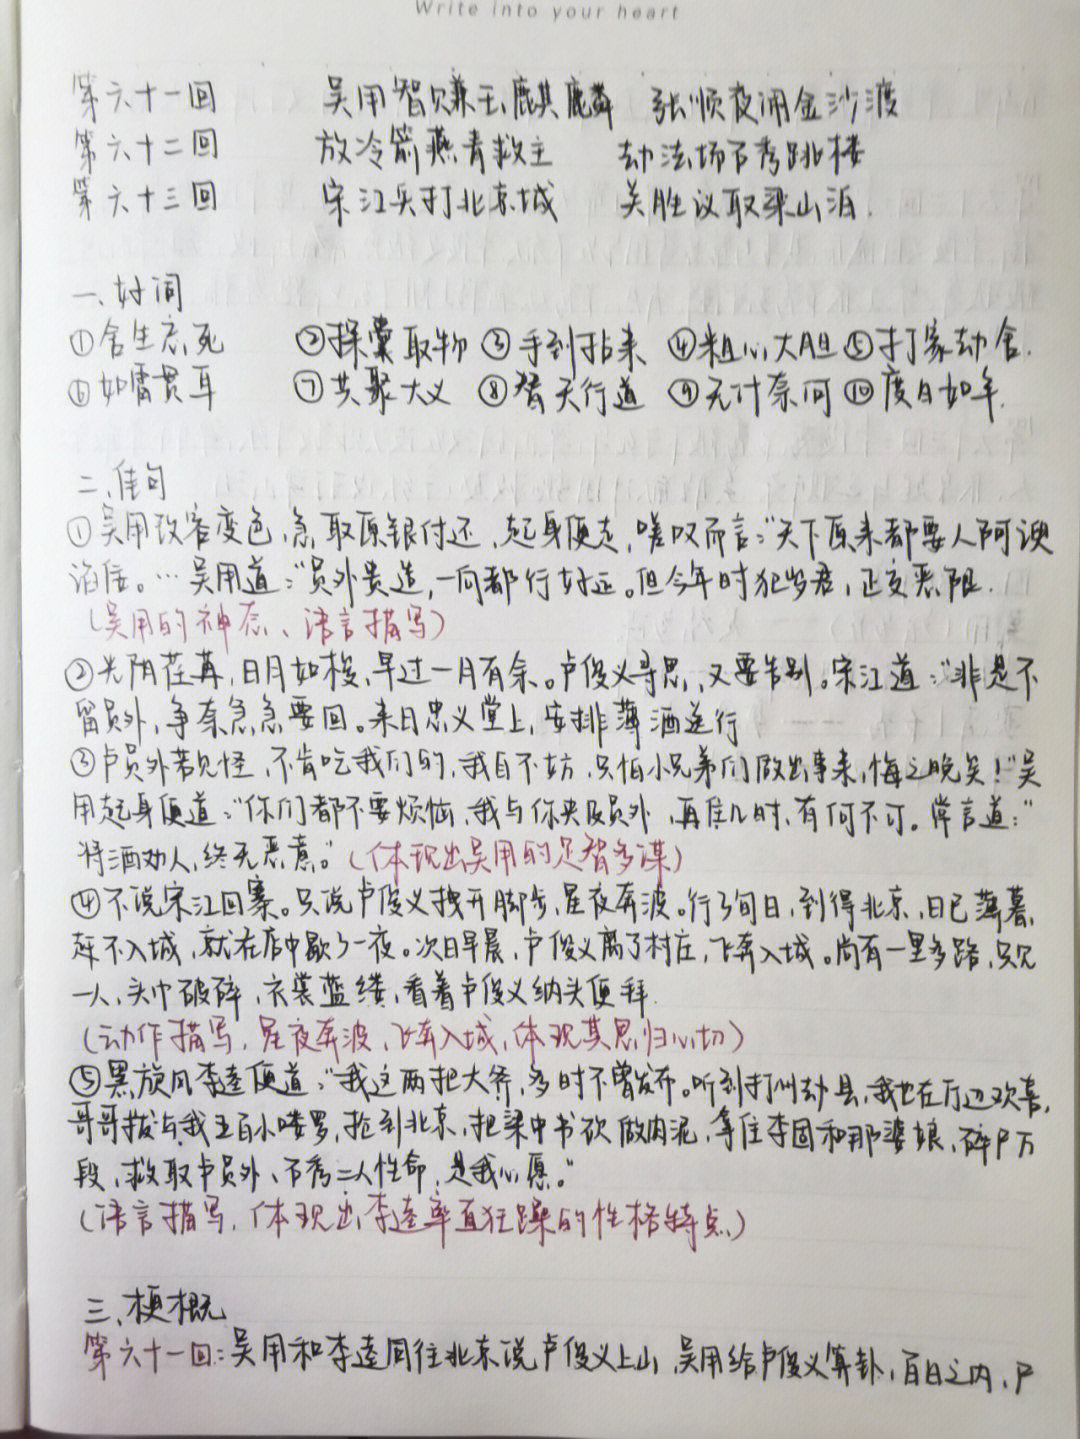 Write into your heart
第六十一回 吴用智赚玉麒麟 张顺夜闹金沙渡
第六十二回 放冷箭燕青救主 劫法场石秀跳楼
第六十三回 宋江兵打北京城 关胜议取梁山泊.
一、好词
①舍生忘死 ②探囊取物 ③手到拈来 ④粗心大胆 ⑤打家劫舍.
⑥如雷贯耳 ⑦共聚大义 ⑧替天行道 ⑨无计奈何 ⑩度日如年.
二、佳句
①吴用改容变色,急取原银付还,起身便走,嗟叹而言:“天下原来都要人阿谀
谄佞。…吴用道:“员外贵造,一向都行好运。但今年时犯岁君,正交恶限.
(吴用的神态、语言描写)
②光阴荏苒,日月如梭,早过一月有余。卢俊义寻思,又要告别。宋江道:“非是不
留员外,争奈急急要回。来日忠义堂上,安排薄酒送行
③卢员外若见怪,不肯吃我们的,我自不妨,只怕小兄弟们做出事来,悔之晚矣!”吴
用起身便道:“你们都不要烦恼,我与你央及员外,再住几时,有何不可。常言道:“
将酒劝人,终无恶意。”(体现出吴用的足智多谋)
④不说宋江回寨。只说卢俊义拽开脚步,星夜奔波。行了旬日,到得北京,日已薄暮,
赶不入城,就在店中歇了一夜。次日早晨,卢俊义离了村庄,飞奔入城。尚有一里多路,只见
一人,头巾破碎,衣裳蓝缕,看着卢俊义纳头便拜.
(动作描写,星夜奔波,飞奔入城,体现其思归心切)
⑤黑旋风李逵便道:“我这两把大斧,多时不曾发市。听到打州劫县,我也在厅边欢喜,
哥哥拨与我五百小喽罗,抢到北京,把梁中书砍做肉泥,拿住李固和那婆娘,碎尸万
段,救取卢员外、石秀二人性命,是我心愿。”
(语言描写,体现出李逵率直狂躁的性格特点)
三、梗概
第六十一回:吴用和李逵同往北京说卢俊义上山,吴用给卢俊义算卦,百日之内,尸